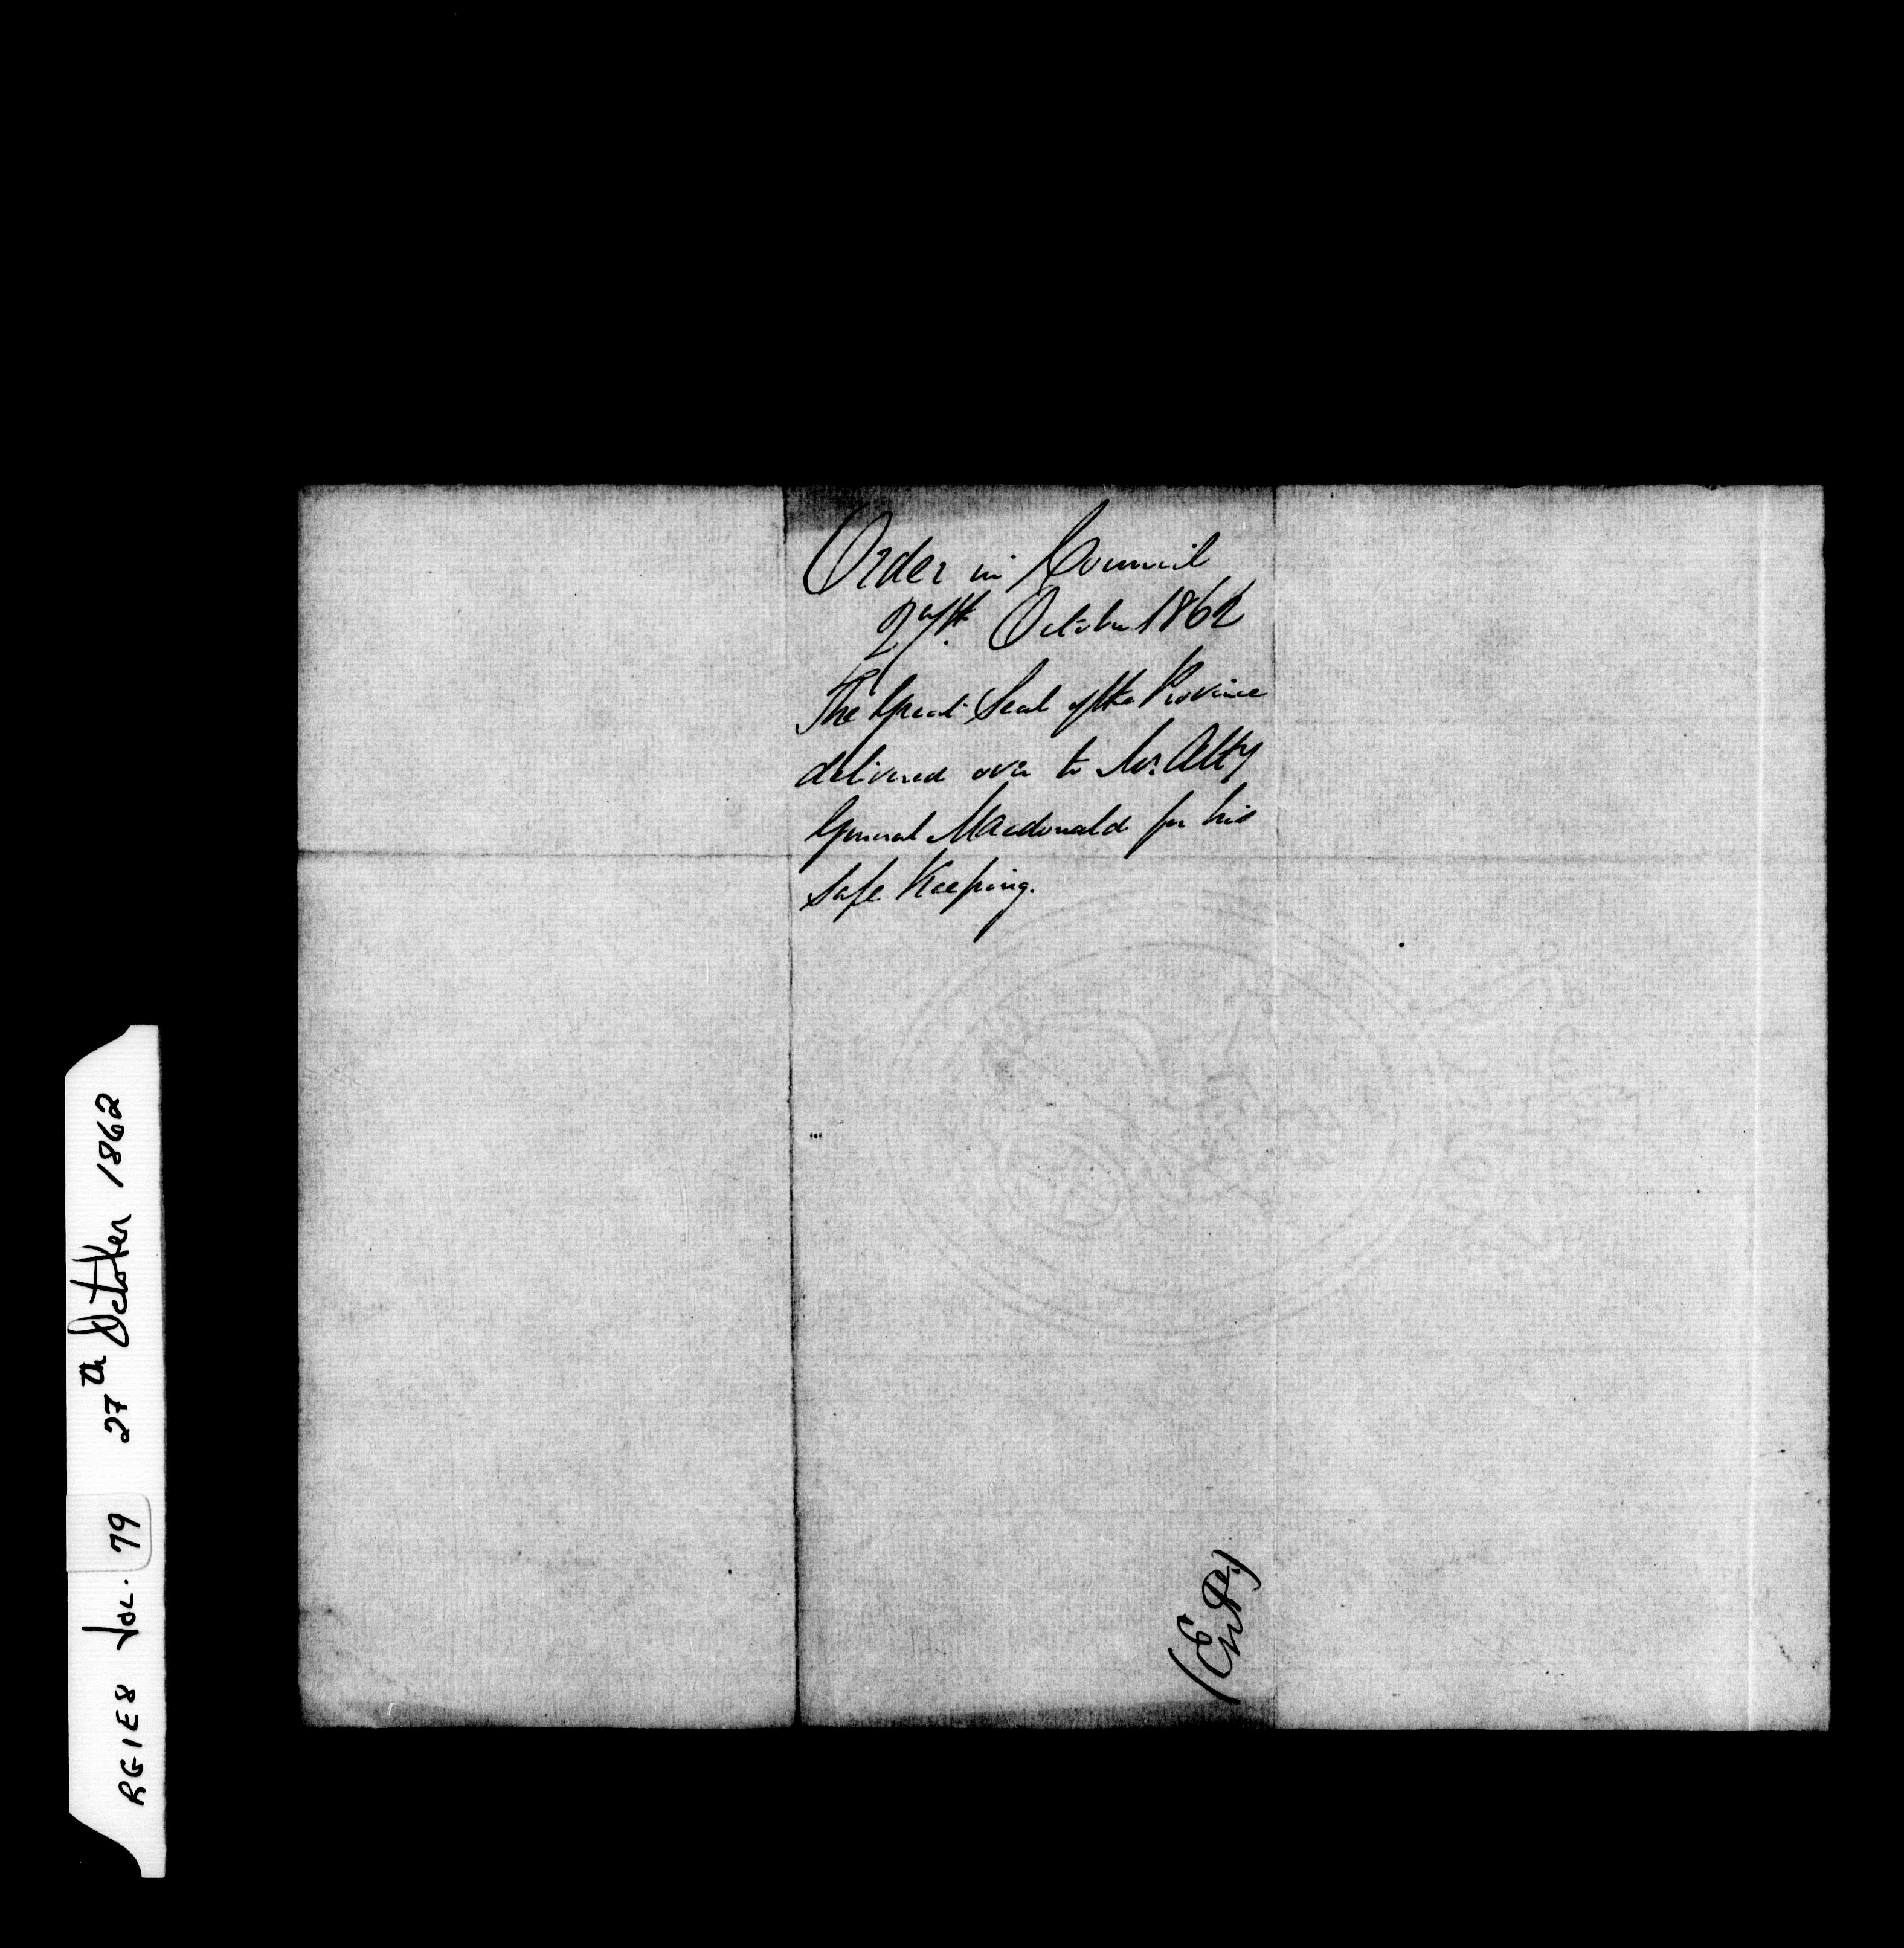 Order in Council
27th. October 1862
The Great Seal of the Province
delivered over to Mr. Atty
General Macdonald for his
safe Keeping.
RG1E8 Vol. 79 27th October 1862